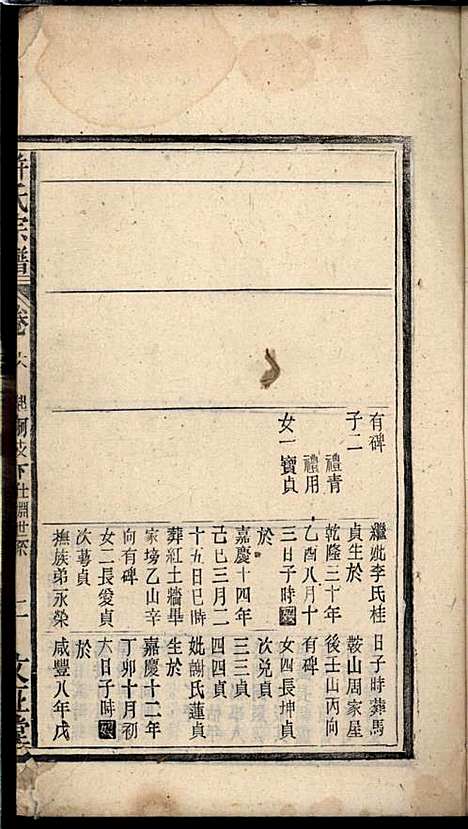 有碑
子二
禮青
禮用
女一寶貞
繼妣李氏桂
貞生於
乾隆三十年
乙酉八月十
三日子時歿
於
嘉慶十四年
己巳三月二
十五日巳時
葬紅土牆畢
家塝乙山辛
向有碑
女二長愛貞
次蕚貞
撫族弟永榮
日子時葬馬
鞍山周家屋
後壬山丙向
有碑
女四長坤貞
次兑貞
三三貞
四四貞
妣謝氏蓮貞
生於
嘉慶十二年
丁卯十月初
六日子時歿
於
咸豐八年戊
許氏宗譜
卷
六
下仕淵世系
二
文正堂